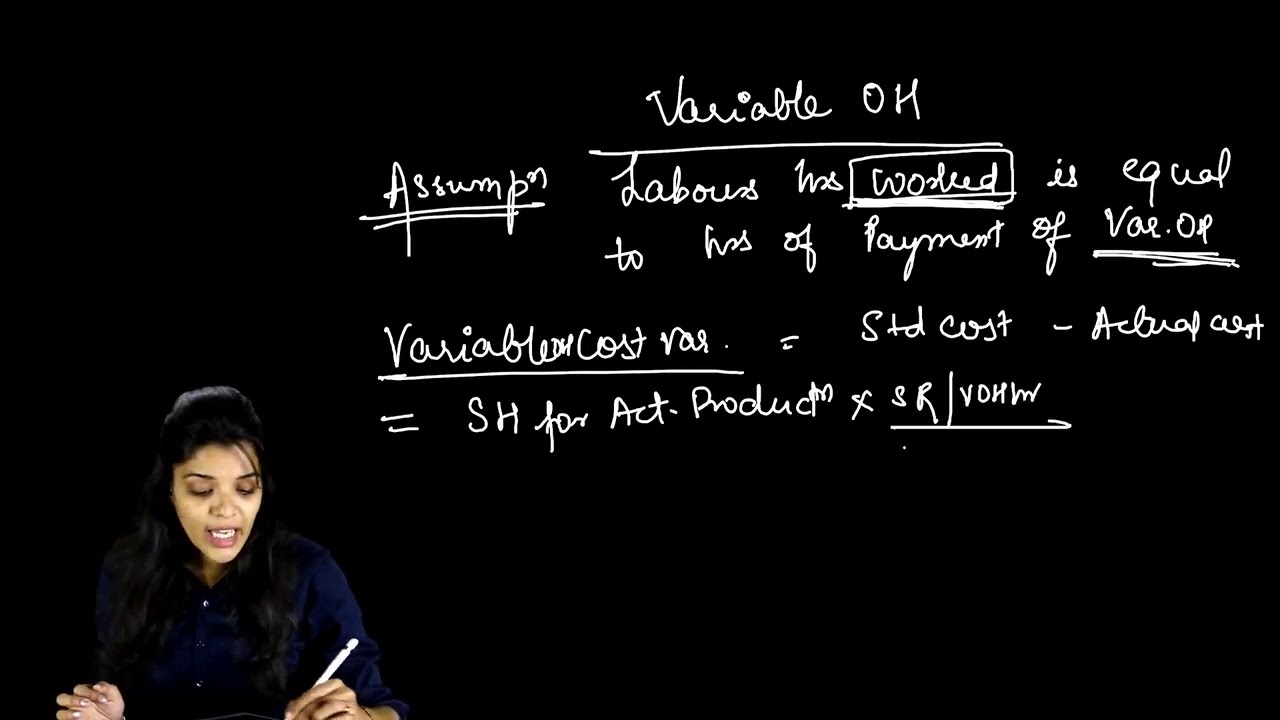 Variable OH
Assumpn Labour hrs worked is equal
to hrs of Payment of Var. OH
Variable OH Cost Var. = Std cost - Actual cost
= SH for Act. Productn × SR/VOH hr